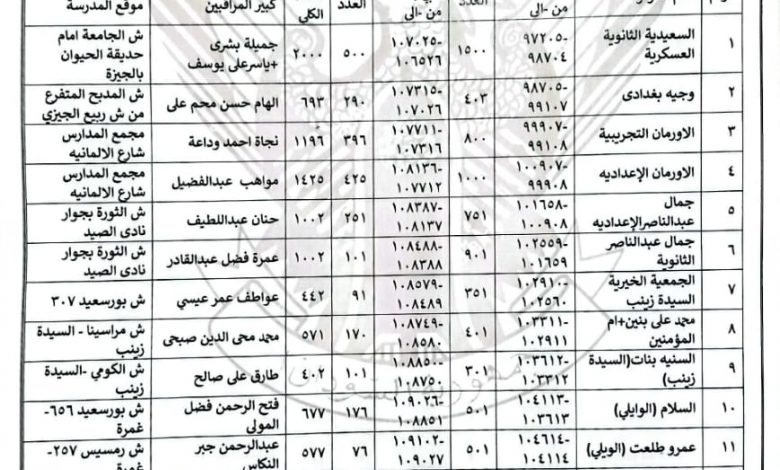 كبير المراقبين
موقع المدرسة
من -الى
العدد
من -الى
العدد
الكلى
١
السعيدية الثانوية
العسكرية
٩٧٢٠٥-
٩٨٧٠٤
١٥٠٠
١٠٧٠٢٥-
١٠٦٥٢٦
٥٠٠
٢٠٠٠
جميلة بشرى
+ياسرعلى يوسف
ش الجامعة امام
حديقة الحيوان
بالجيزة
٢
وجيه بغدادى
٩٨٧٠٥-
٩٩١٠٧
٤٠٣
١٠٧٣١٥-
١٠٧٠٢٦
٢٩٠
٦٩٣
الهام حسن محم على
ش المدبح المتفرع
من ش ربيع الجيزي
٣
الاورمان التجريبية
٩٩٩٠٧-
٩٩١٠٨
٨٠٠
١٠٧٧١١-
١٠٧٣١٦
٣٩٦
١١٩٦
نجاة احمد وداعة
مجمع المدارس
شارع الالمانيه
٤
الاورمان الإعداديه
١٠٠٩٠٧-
٩٩٩٠٨
١٠٠٠
١٠٨١٣٦-
١٠٧٧١٢
٤٢٥
١٤٢٥
مواهب عبدالفضيل
مجمع المدارس
شارع الالمانيه
٥
جمال
عبدالناصرالإعداديه
١٠١٦٥٨-
١٠٠٩٠٨
٧٥١
١٠٨٣٨٧-
١٠٨١٣٧
٢٥١
١٠٠٢
حنان عبداللطيف
ش الثورة بجوار
نادى الصيد
٦
جمال عبدالناصر
الثانوية
١٠٢٥٥٩-
١٠١٦٥٩
٩٠١
١٠٨٤٨٨-
١٠٨٣٨٨
١٠١
١٠٠٢
عمرة فضل عبدالقادر
ش الثورة بجوار
نادى الصيد
٧
الجمعية الخيرية
السيدة زينب
١٠٢٩١٠-
١٠٢٥٦٠
٣٥١
١٠٨٥٧٩-
١٠٨٤٨٩
٩١
٤٤٢
عواطف عمر عيسي
ش بورسعيد ٣٠٧
٨
محمد على بنين+ام
المؤمنين
١٠٣٣١١-
١٠٢٩١١
٤٠١
١٠٨٧٤٩-
١٠٨٥٨٠
١٧٠
٥٧١
محمد محى الدين صبحى
ش مراسينا - السيدة
زينب
٩
السنيه بنات(السيدة
زينب)
١٠٣٦١٢-
١٠٣٣١٢
٣٠١
١٠٨٨٥٠-
١٠٨٧٥٠
١٠١
٤٠٢
طارق على صالح
ش الكومي -السيدة
زينب
١٠
السلام (الوايلي)
١٠٤١١٣-
١٠٣٦١٣
٥٠١
١٠٩٠٢٦-
١٠٨٨٥١
١٧٦
٦٧٧
فتح الرحمن فضل
المولى
ش بورسعيد ٦٥٦-
غمرة
١١
عمرو طلعت (الويلي)
١٠٤٦١٤-
١٠٤١١٤
٥٠١
١٠٩١٠٢-
١٠٩٠٢٧
٧٦
٥٧٧
عبدالرحمن جبر
النكاس
ش رمسيس ٢٥٧-
غمرة